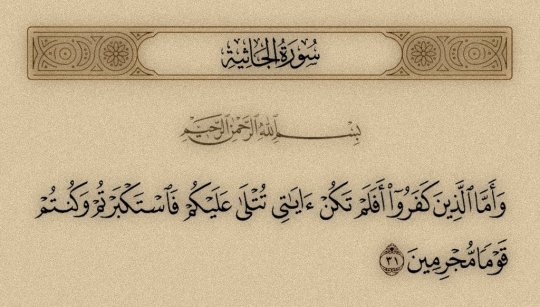 سُورَةُ الجَاثِيَة
بِسْمِ اللَّهِ الرَّحْمَٰنِ الرَّحِيمِ
وَأَمَّا ٱلَّذِينَ كَفَرُوٓا۟ أَفَلَمْ تَكُنْ ءَايَٰتِى تُتْلَىٰ عَلَيْكُمْ فَٱسْتَكْبَرْتُمْ وَكُنتُمْ
قَوْمًا مُّجْرِمِينَ ٣١